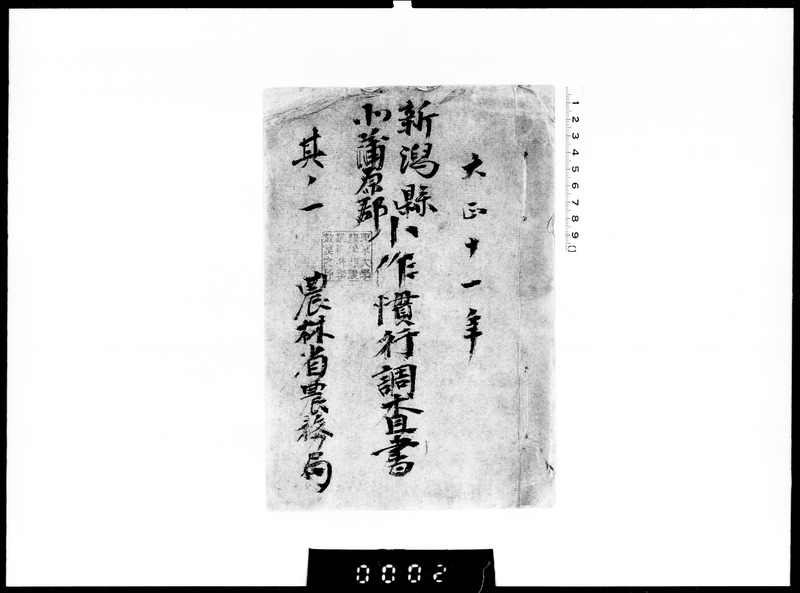 大正十一年
新潟縣
北蒲原郡
小作慣行調査書
其ノ一
農林省農務局
1 2 3 4 5 6 7 8 9
0002